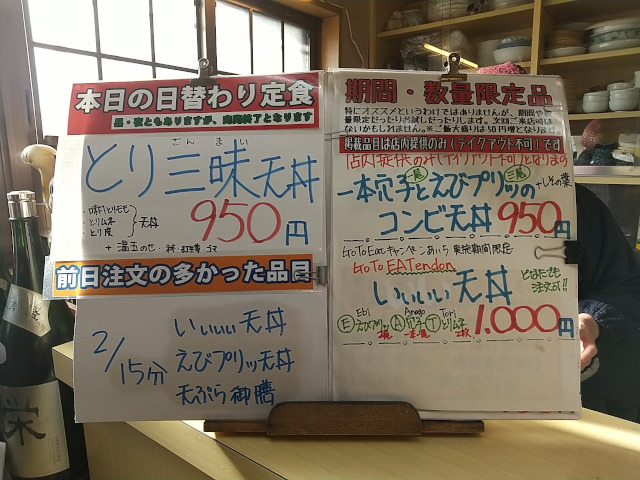 本日の日替わり定食
昼・夜ともありますが、無時終了となります
さんまい
とり三昧天丼
・味付とりモモ
・とりムネ
・とり皮
天丼
950円
+温玉のせ
前日注文の多かった品目
2/15分
いいいい天丼
えびプリッ天丼
天ぷら御膳
期間・数量限定品
特にオススメというわけではありませんが、期間や数
量限定だったりお試しだったりします。次回ご来店時は
ないかもしれません。※ご飯大盛りは50円増となります。
掲載品目は店内提供のみ(テイクアウト不可)です
店内提供のみ(テイクアウト不可)となります
一本穴子とえびプリッの
二尾
+しその葉
コンビ天丼 950円
GoToEatキャンペーンあいち 実施期間限定
GoTo EATendon
いいいい天丼
どなたでも
ご注文可!!
Ebi Anago Tori
Eえびプリッ A穴子 Tとりムネ
1.000円
栄